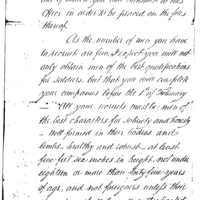 Office in order to be placed on the files
thereof.
As the number of men you have
to recruit are few, I expect you will not
only obtain men of the best qualifications
for soldiers, but that you will complete
your companies before the 1st of February
All your recruits must be men of
the best characters for sobriety and honesty
well formed in their bodies and
limbs, healthy and robust, at least
five feet six inches in height, not under
eighteen or more than forty-five years
of age, and not foreigners unless their